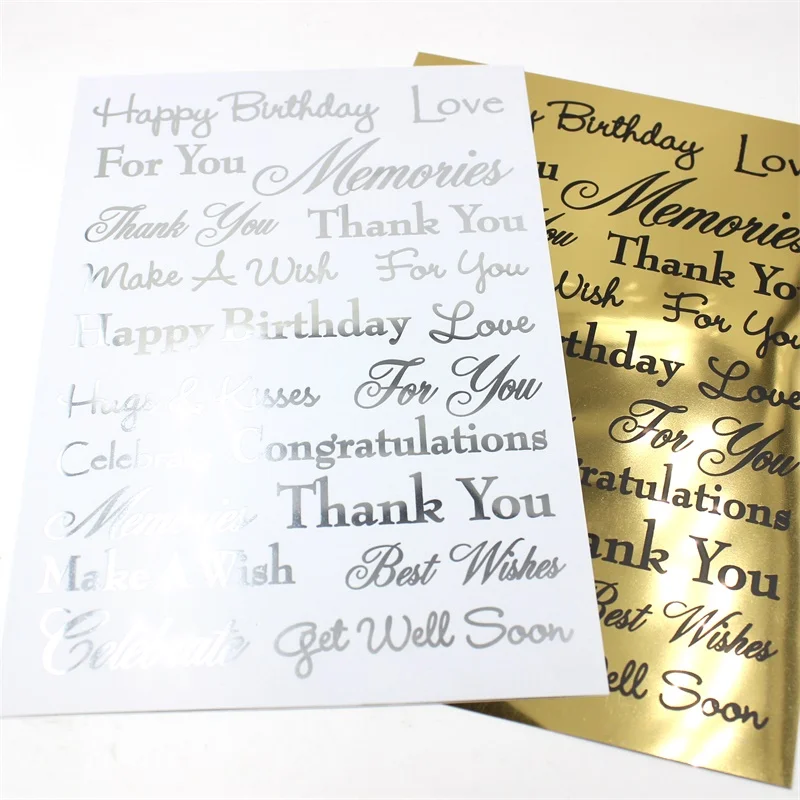 Happy Birthday Love
For You Memories
Thank You Thank You
Make A Wish For You
Happy Birthday Love
Hugs & Kisses For You
Celebrate Congratulations
Memories Thank You
Make A Wish Best Wishes
Celebrate Get Well Soon
y Birthday Love
u Memories
You Thank You
Wish For You
thday Love
For You
ratulations
ank You
Best Wishes
ell Soon